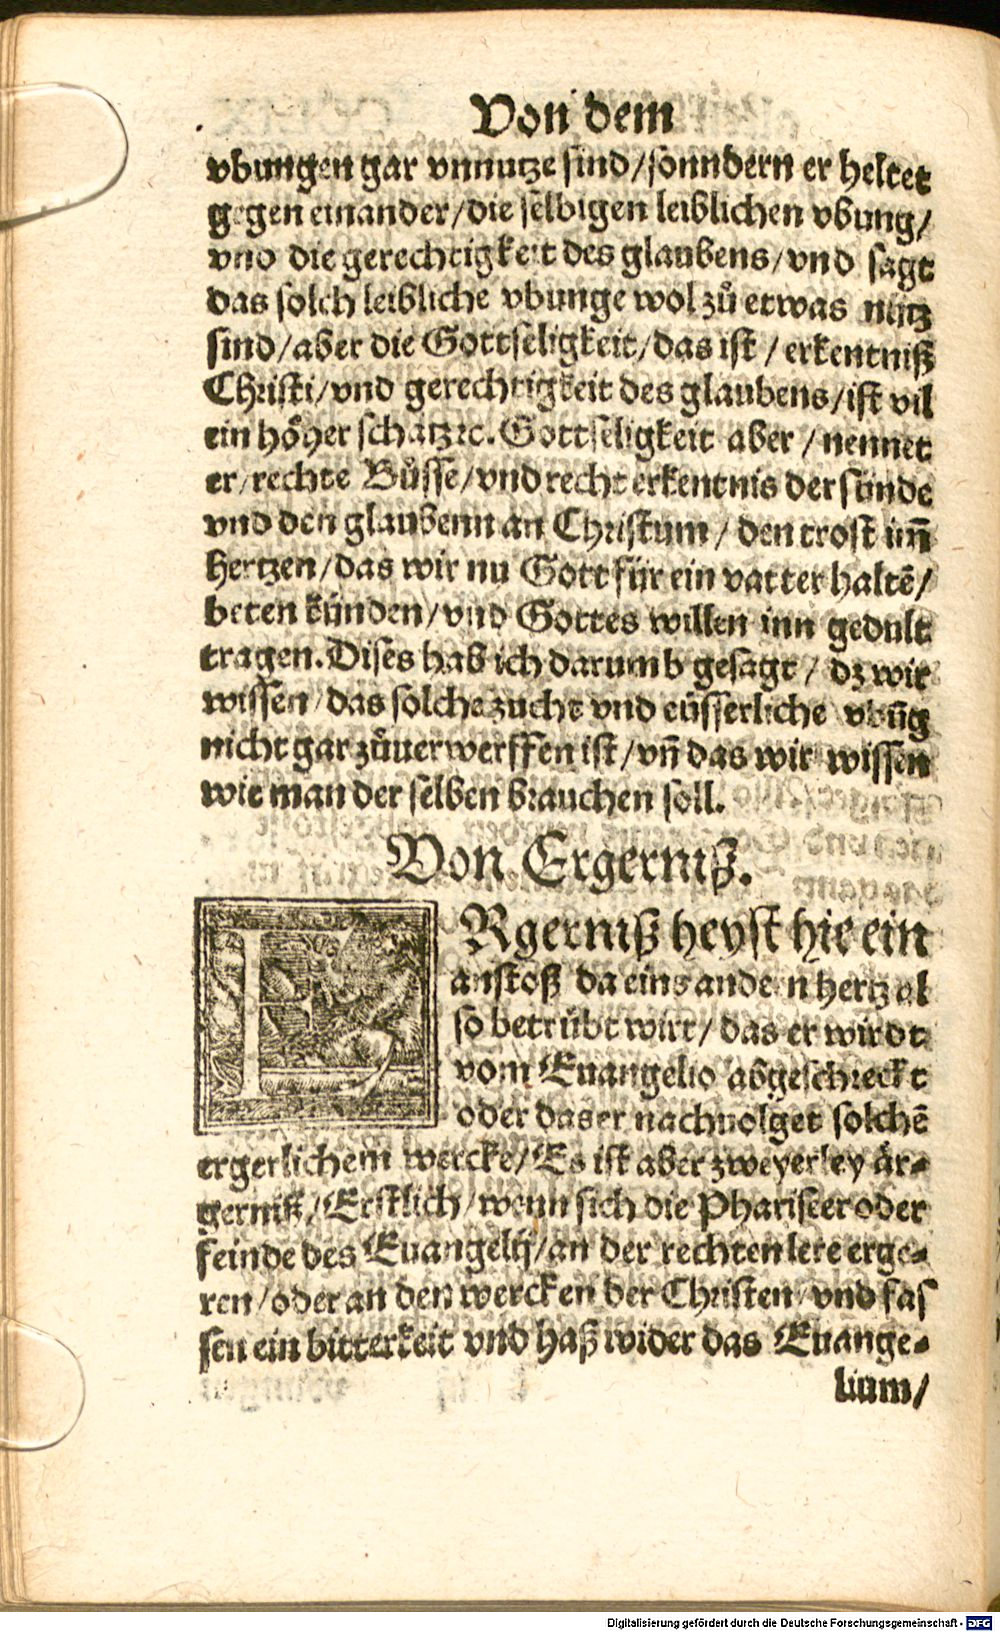 Von dem
vbungen gar vnnutze sind/sonndern er heltet
gegen einander/die selbigen leiblichen vbung/
vnd die gerechtigkeit des glaubens/vnd sagt
das solch leibliche vbunge wol zů etwas nutz
sind/aber die Gottseligkeit/das ist/erkentniß
Christi/vnd gerechtigkeit des glaubens/ist vil
ein höher schatz ꝛc. Gottseligkeit aber/nennet
er/rechte Bůsse/vnd recht erkentnis der sünde
vnd den glaubenn an Christum/den trost im̃
hertzen/das wir nu Gott für ein vatter haltẽ/
beten künden/vnd Gottes willen inn gedult
tragen. Dises hab ich darumb gesagt/dz wir
wissen/das solche zucht vnd eüsserliche vbũg
nicht gar zůuerwerffen ist/vñ das wir wissen
wie man der selben brauchen soll.
Von Ergerniß.
ERgerniß heyst hie ein
anstoß da eins andern hertz al
so betrübt wirt/das er wirdt
vom Euangelio abgeschreckt
oder das er nachuolget solchẽ
ergerlichem wercke/Es ist aber zweyerley är-
gerniß/Erstlich/wenn sich die Phariseer oder
feinde des Euangelij/an der rechten lere erge-
ren/oder an den wercken der Christen/vnd fas
sen ein bitterkeit vnd haß wider das Euange-
lium/
Digitalisierung gefördert durch die Deutsche Forschungsgemeinschaft - DFG